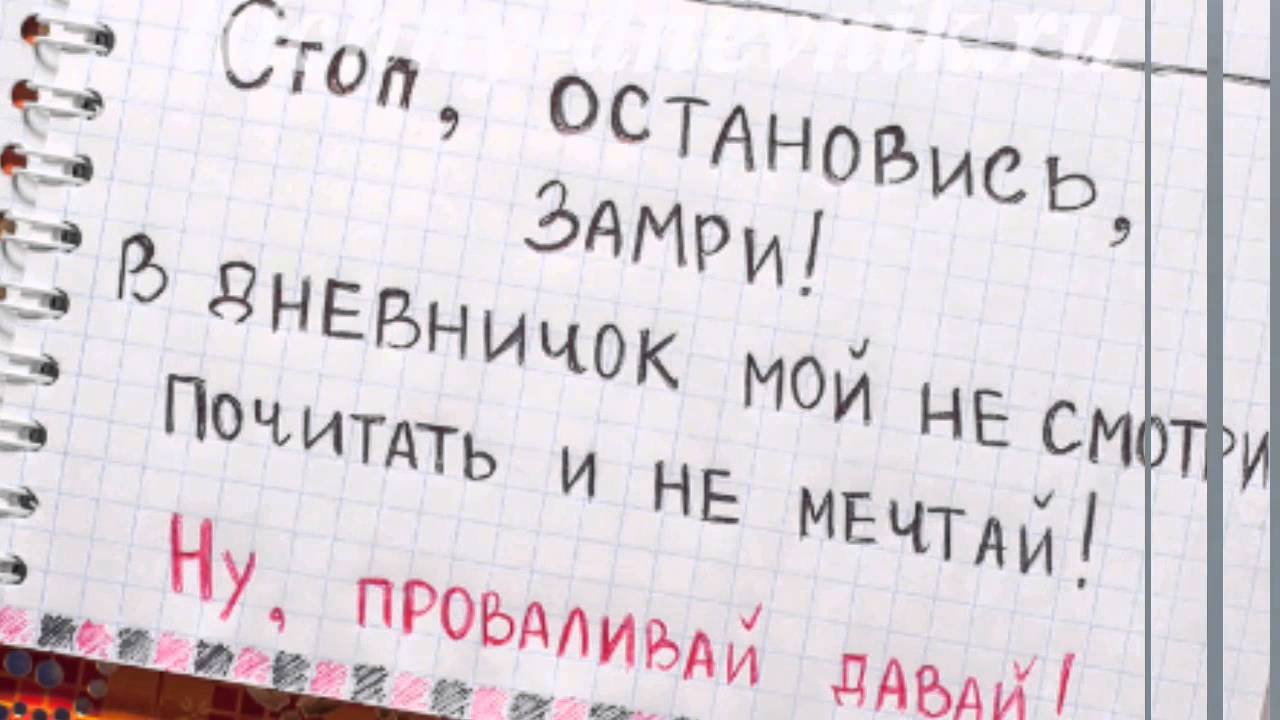 Стоп, ОСТАНОВИСЬ,
ЗАМРИ!
В ДНЕВНИЧОК МОЙ НЕ СМОТРИ
ПОЧИТАТЬ И НЕ МЕЧТАЙ!
Ну, ПРОВАЛИВАЙ ДАВАЙ!